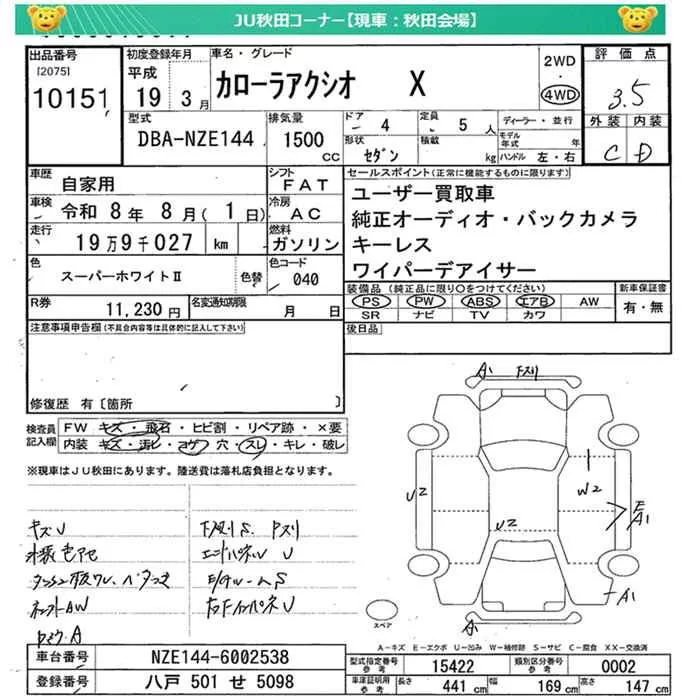 JU秋田コーナー【現車：秋田会場】
出品番号
[2075]
10151
初度登録年月
平成
19 3月
車名・グレード
カローラアクシオ X
2WD
・
4WD
評価点
3.5
外装 内装
C D
型式
DBA-NZE144
排気量
1500
cc
ドア 4
定員 5人
形状 セダン
積載 kg
ディーラー・並行
モデル年式 年
ハンドル 左・右
車歴
自家用
シフト
FAT
車検
令和 8年 8月(1日)
冷房
AC
走行
19万9千027 km
燃料
ガソリン
色
スーパーホワイトⅡ
色替
色コード
040
R券
11,230円
名変通知期限
月 日
セールスポイント(正常に機能するものに限ります)
ユーザー買取車
純正オーディオ・バックカメラ
キーレス
ワイパーデアイサー
装備品(純正品に限り○をつけてください)
PS PW ABS エアB AW
SR ナビ TV カワ
新車保証書
有・無
後日品
注意事項申告欄(不具合内容等は具体的に記入して下さい)
修復歴 有〔箇所 〕
検査員記入欄
FW キズ・飛石・ヒビ割・リペア跡・×要
内装 キズ・汚レ・コゲ・穴・スレ・キレ・破レ
※現車はJU秋田にあります。陸送費は落札店負担となります。
キズU
外装色アセ
ダッシュ板ワレ、ベタつき
下廻りS
エンドパネルU
A 下スリ
U2
U2
W2
E
A1
A1
A
スペア
A－キズ E－エクボ U－凹み W－補修跡 S－サビ C－腐食 XX－交換済
車台番号
NZE144-6002538
登録番号
八戸 501 せ 5098
型式指定番号
15422
類別区分番号
0002
車庫証明用参考
長さ 441 cm
幅 169 cm
高さ 147 cm